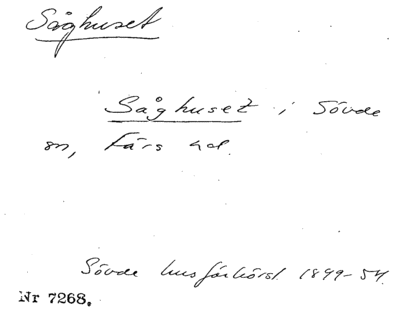 Såghuset
Såghuset i Sövde
sn, Färs hd.
Sövde husförhörsl. 1849-54.
Nr 7268.